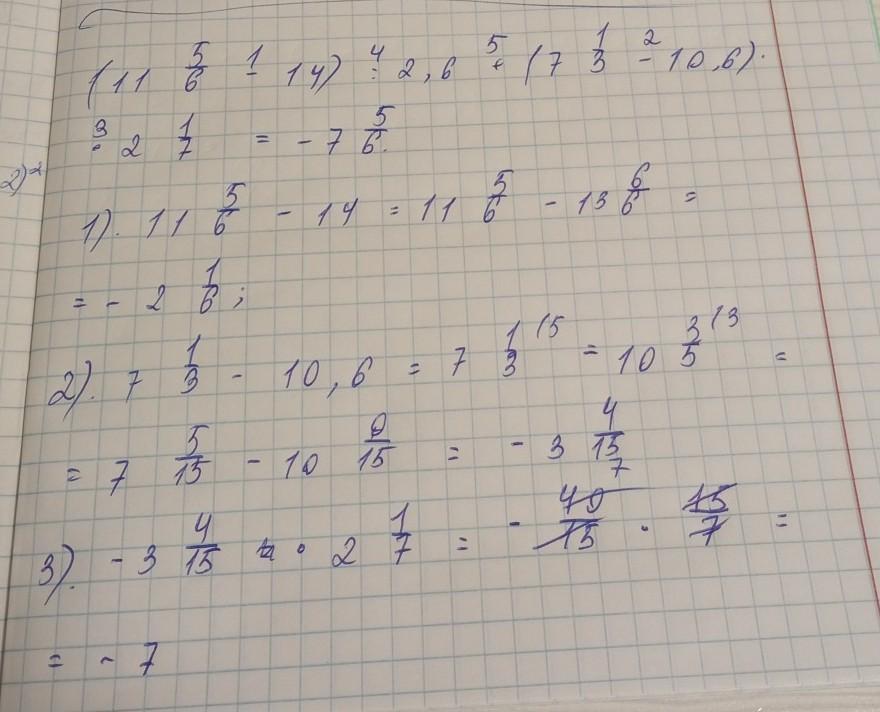 (11 5/6 - 14) : 2,6 + (7 1/3 - 10,6) ·
· 2 1/7 = - 7 5/6.
1). 11 5/6 - 14 = 11 5/6 - 13 6/6 =
= - 2 1/6;
2). 7 1/3 - 10,6 = 7 1/3 (5 = 10 3/5 (3 =
= 7 5/15 - 10 9/15 = - 3 4/15
3). - 3 4/15 · 2 1/7 = - 49/15 · 15/7 =
= - 7
2)